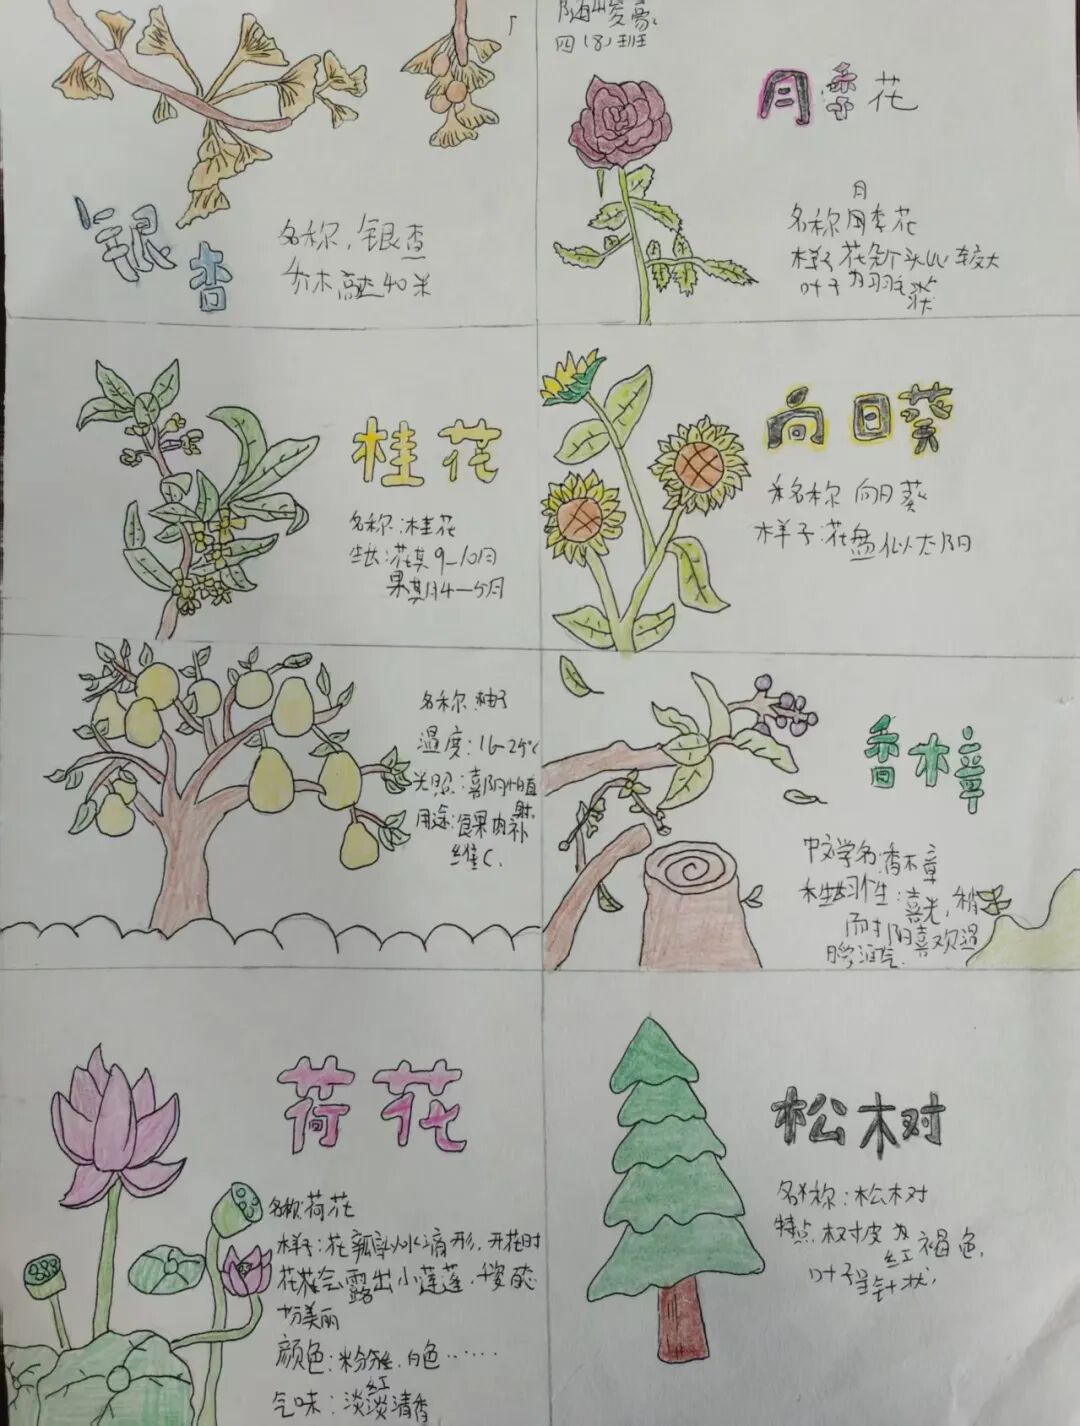 银杏
名称,银杏
乔木高达40米
四(8)班
月季花
月
名称 季花
样子 花朵个头 较大
叶子为羽 状
桂花
名称:桂花
花其9-10月
果其月4-5月
向日葵
名称 向日葵
样子:花盘似太阳
名称 柚子
温度:16-25℃
光照:喜阴 植
用途:食果肉补
维C.
香木樟
中文学名:香木章
习性:喜光,稍
而寸阴喜欢温
荷花
名称:荷花
样子:花瓣 水滴形,开花时
花 会露出小莲蓬,千姿百态
美丽
颜色:粉 红,白色······
气味:淡淡清香
松树
名称:松树
特点,树皮为
红褐色,
叶子呈针状,